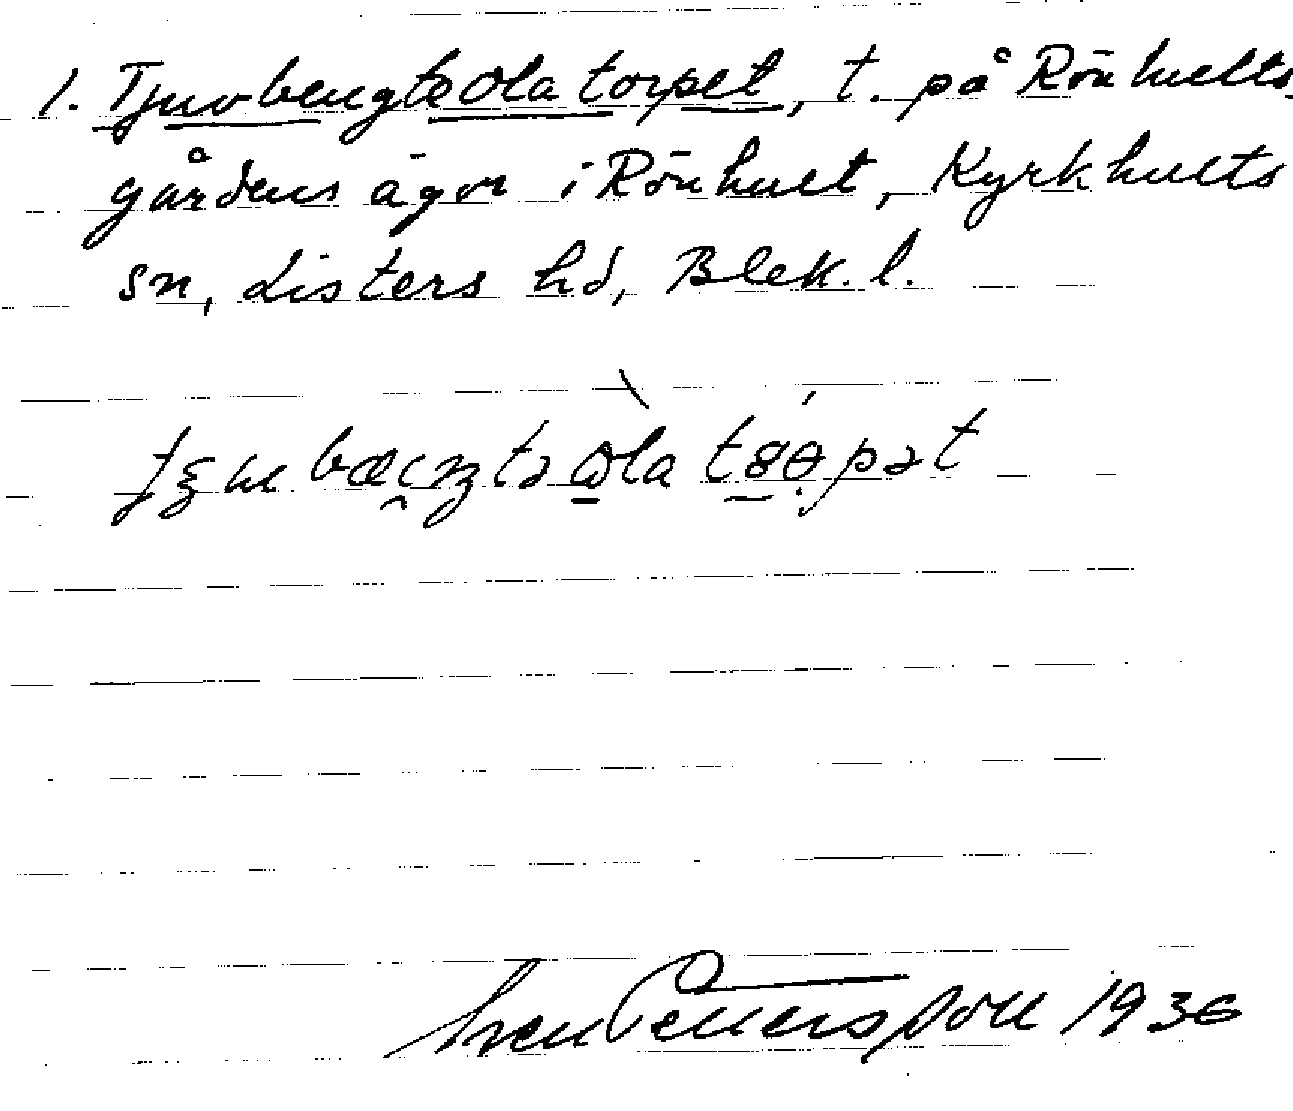 1. Tjuvbengtsolatorpet, t. på Rönhults-
gårdens ägor i Rönhult, Kyrkhults
sn, Listers hd, Blek. l.
Sven Petersson 1936